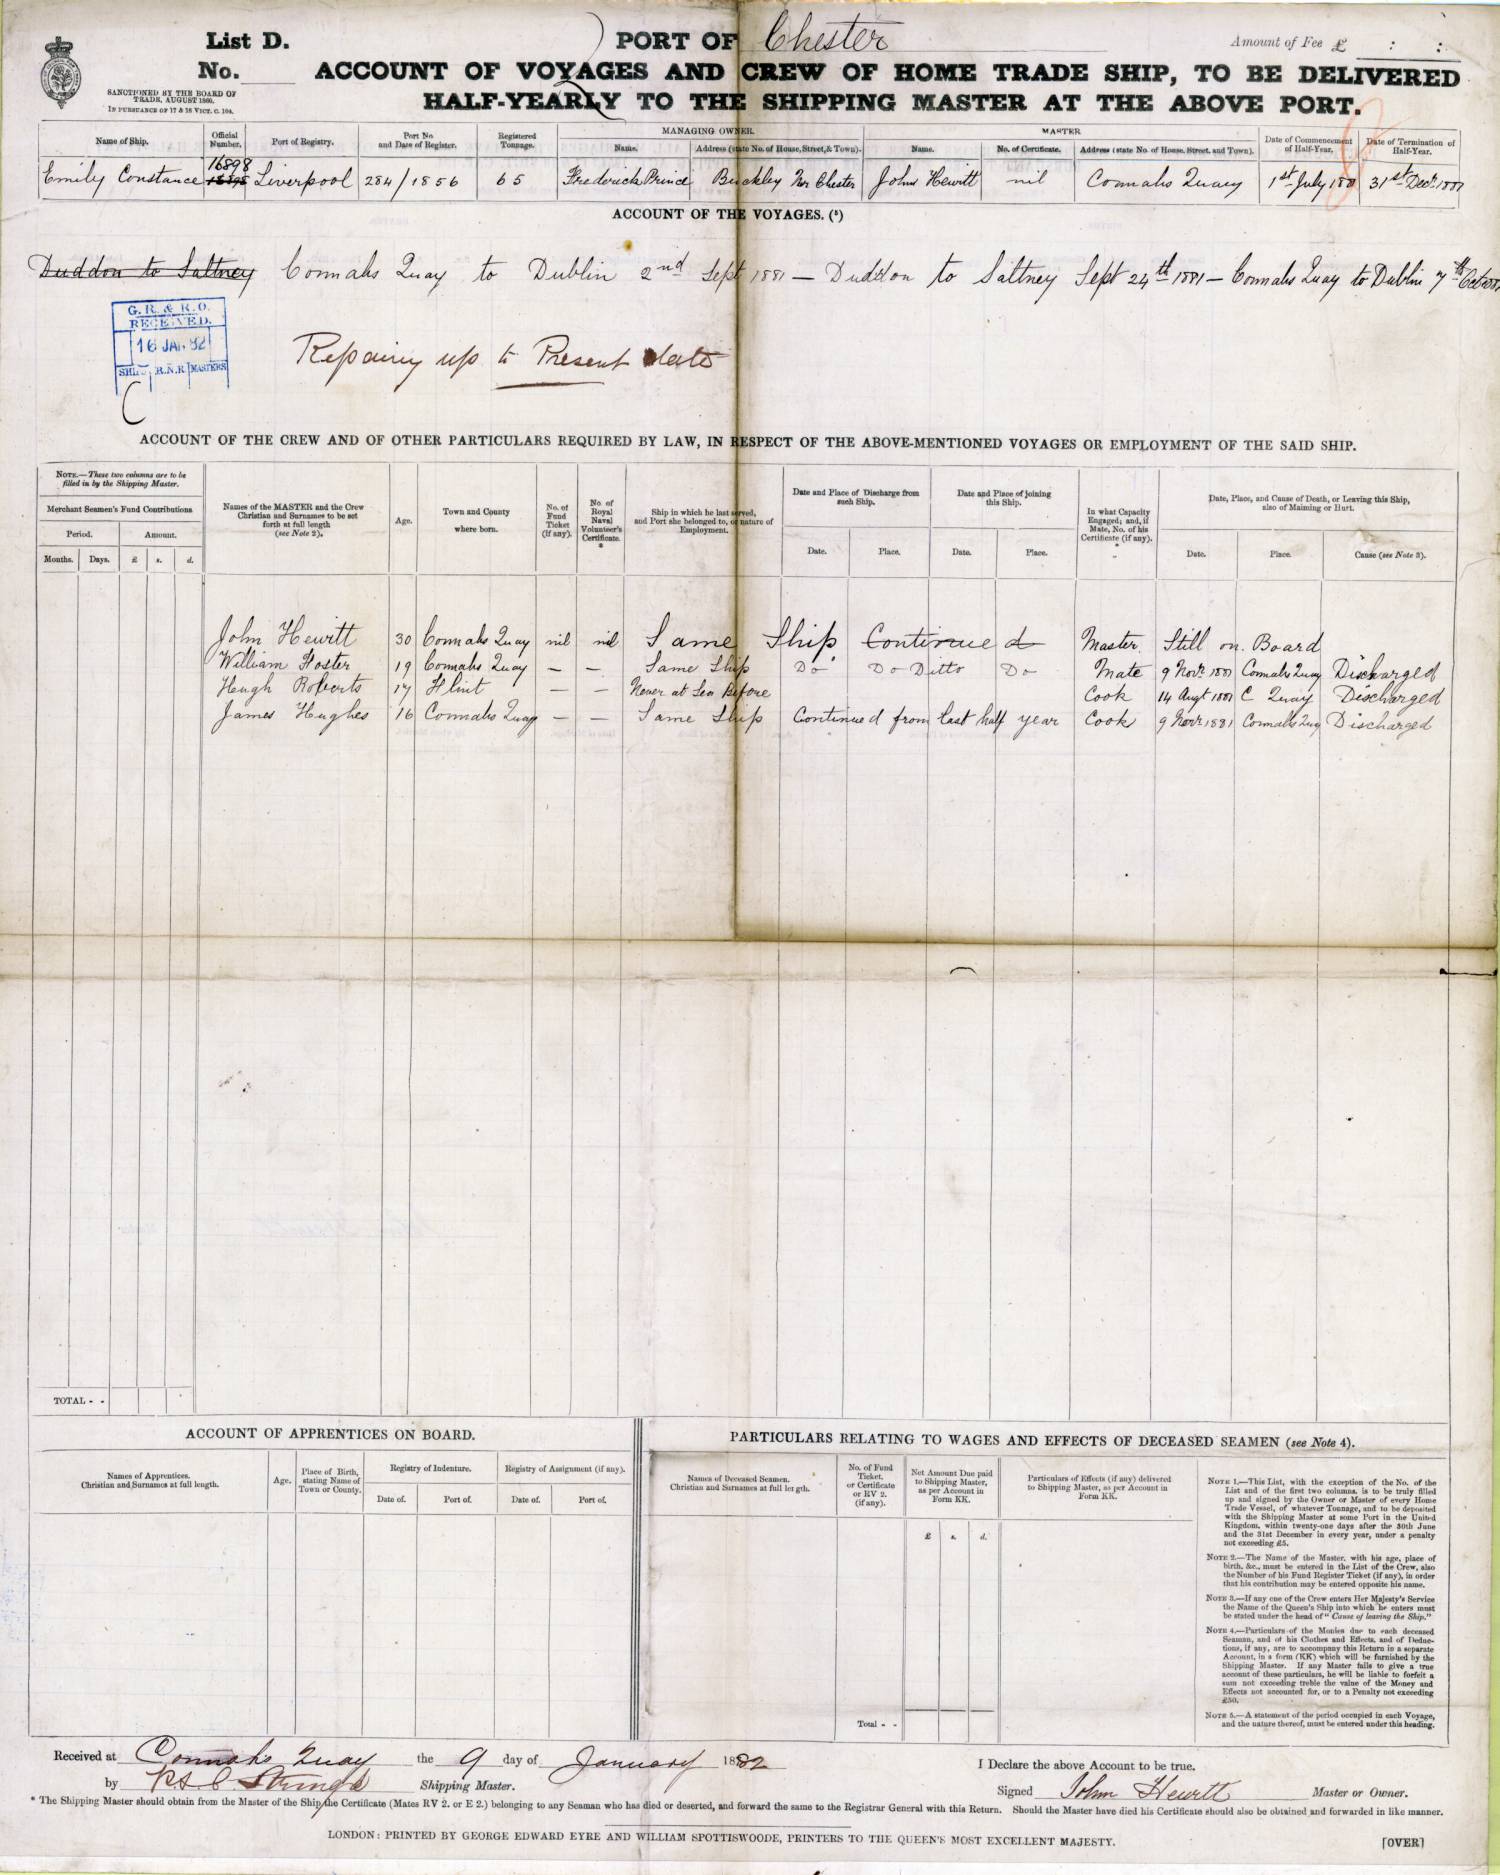 List D.
PORT OF Chester
Amount of Fee £ : :
No.
ACCOUNT OF VOYAGES AND CREW OF HOME TRADE SHIP, TO BE DELIVERED
HALF-YEARLY TO THE SHIPPING MASTER AT THE ABOVE PORT.
SANCTIONED BY THE BOARD OF
TRADE, AUGUST 1860.
IN PURSUANCE OF 17 & 18 VICT. C. 104.
Name of Ship. Official Number. Port of Registry. Port No. and Date of Register. Registered Tonnage. MANAGING OWNER. Name. Address (state No. of House, Street, & Town). MASTER Name. No. of Certificate. Address (state No. of House, Street, and Town). Date of Commencement of Half-Year. Date of Termination of Half-Year.
16898
Emily Constance Liverpool 284/1856 65 Frederick Prince Buckley Nr Chester John Hewitt nil Connahs Quay 1st July 1881 31st Decr. 1881
ACCOUNT OF THE VOYAGES. (5)
Duddon to Saltney Connahs Quay to Dublin 2nd Sept 1881 — Duddon to Saltney Sept 24th 1881 — Connahs Quay to Dublin 7th Oct 1881
G. R. & R. O.
RECEIVED.
16 JAN. 82
SHIPS R.N.R MASTERS
Repairing up to Present date
ACCOUNT OF THE CREW AND OF OTHER PARTICULARS REQUIRED BY LAW, IN RESPECT OF THE ABOVE-MENTIONED VOYAGES OR EMPLOYMENT OF THE SAID SHIP.
NOTE.—These two columns are to be filled in by the Shipping Master.
Merchant Seamen's Fund Contributions
Period. Amount.
Months. Days. £ s. d.
Names of the MASTER and the Crew Christian and Surnames to be set forth at full length (see Note 2).
Age.
Town and County where born.
No. of Fund Ticket (if any).
No. of Royal Naval Volunteer's Certificate. *
Ship in which he last served, and Port she belonged to, or nature of Employment.
Date and Place of Discharge from such Ship. Date. Place.
Date and Place of joining this Ship. Date. Place.
In what Capacity Engaged; and, if Mate, No. of his Certificate (if any). *
Date, Place, and Cause of Death, or Leaving this Ship, also of Maiming or Hurt.
Date. Place. Cause (see Note 3).
John Hewitt 30 Connahs Quay nil nil Same Ship Continued Master Still on Board
William Foster 19 Connahs Quay — — Same Ship Do Do Ditto Do Mate 9 Novr. 1881 Connahs Quay Discharged
Hugh Roberts 17 Flint — — Never at Sea Before Cook 14 Augt 1881 C Quay Discharged
James Hughes 16 Connahs Quay — — Same Ship Continued from last half year Cook 9 Novr 1881 Connahs Quay Discharged
TOTAL - -
ACCOUNT OF APPRENTICES ON BOARD.
Names of Apprentices. Christian and Surnames at full length.
Age.
Place of Birth, stating Name of Town or County.
Registry of Indenture. Date of. Port of.
Registry of Assignment (if any). Date of. Port of.
PARTICULARS RELATING TO WAGES AND EFFECTS OF DECEASED SEAMEN (see Note 4).
Names of Deceased Seamen. Christian and Surnames at full length.
No. of Fund Ticket, or Certificate or RV 2. (if any).
Net Amount Due paid to Shipping Master, as per Account in Form KK.
£ s. d.
Particulars of Effects (if any) delivered to Shipping Master, as per Account in Form KK.
Total - -
NOTE 1.—This List, with the exception of the No. of the
List and of the first two columns, is to be truly filled
up and signed by the Owner or Master of every Home
Trade Vessel, of whatever Tonnage, and to be deposited
with the Shipping Master at some Port in the United
Kingdom, within twenty-one days after the 30th June
and the 31st December in every year, under a penalty
not exceeding £5.
NOTE 2.—The Name of the Master, with his age, place of
birth, &c., must be entered in the List of the Crew, also
the Number of his Fund Register Ticket (if any), in order
that his contribution may be entered opposite his name.
NOTE 3.—If any one of the Crew enters Her Majesty's Service
the Name of the Queen's Ship into which he enters must
be stated under the head of "Cause of leaving the Ship."
NOTE 4.—Particulars of the Monies due to each deceased
Seaman, and of his Clothes and Effects, and of Deduc-
tions, if any, are to accompany this Return in a separate
Account, in a form (KK) which will be furnished by the
Shipping Master. If any Master fails to give a true
account of these particulars, he will be liable to forfeit a
sum not exceeding treble the value of the Money and
Effects not accounted for, or to a Penalty not exceeding
£50.
NOTE 5.—A statement of the period occupied in each Voyage,
and the nature thereof, must be entered under this heading.
Received at Connahs Quay the 9 day of January 1882
by Shipping Master.
I Declare the above Account to be true.
Signed John Hewitt Master or Owner.
* The Shipping Master should obtain from the Master of the Ship the Certificate (Mates RV 2. or E 2.) belonging to any Seaman who has died or deserted, and forward the same to the Registrar General with this Return. Should the Master have died his Certificate should also be obtained and forwarded in like manner.
LONDON: PRINTED BY GEORGE EDWARD EYRE AND WILLIAM SPOTTISWOODE, PRINTERS TO THE QUEEN'S MOST EXCELLENT MAJESTY.
[OVER]